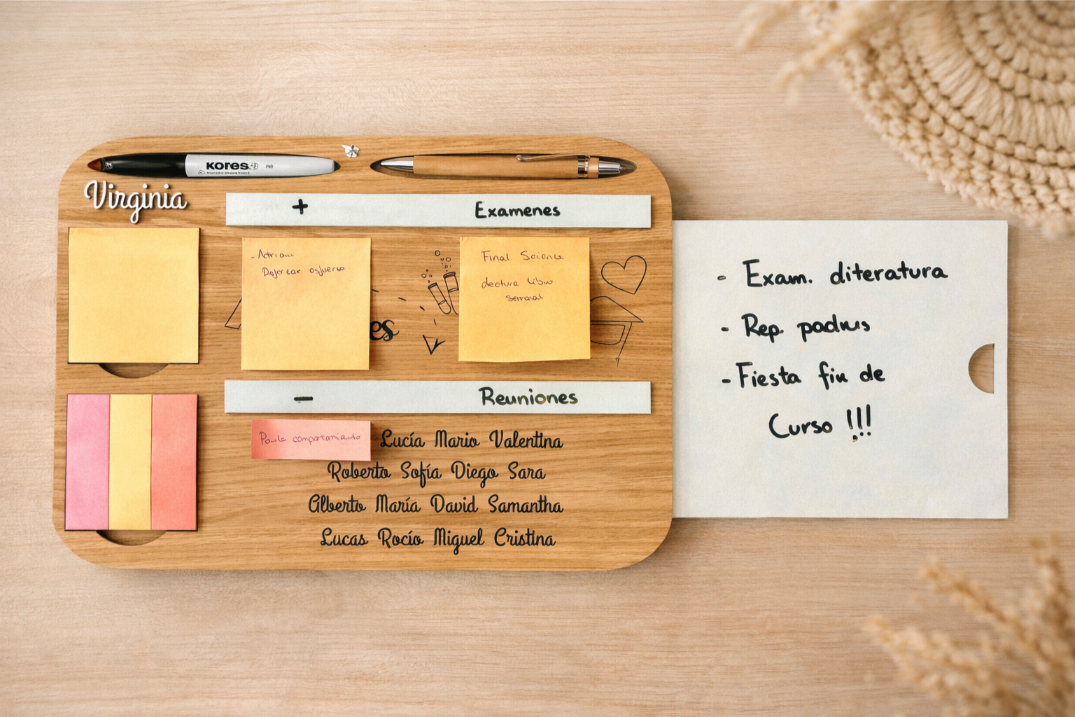 KORES
Virginia
+ Examenes
- Adrian
Reforzar esfuerzo
Final Science
Lectura libro
semanal
es
- Reuniones
Paula comportamiento
Lucía Mario Valentina
Roberto Sofía Diego Sara
Alberto María David Samantha
Lucas Rocío Miguel Cristina
- Exam. diteratura
- Rep. padres
- Fiesta fin de
Curso !!!